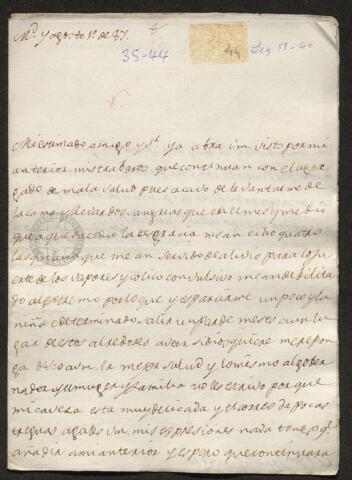 M.d y agosto 1º de 87.
35-44
44
Leg 59-40
Mi estimado amigo y S.r ya abra Vm visto por mi
anterior mis trabajos que continuan con el agre
gado de mala salud pues acavo de levantarme de
la cama y llevar dos sangrias que en el mes y medio
que a que sucedio la desgracia me an echo quatro
las que me an servido de alivio para lo
de los vapores y colico convulsivo me an devilita
do al por lo que y esparcirme un poco y la
niña e determinado salir un par de meses a un lu
gar de estos alrededores a ver si dios quiere me repon
ga deseo a Vm la mejor salud y lo mismo al gover
nador su muger y familia no les escrivo por que
mi caveza esta muy delicada y el correo da pocas
treguas agales Vm mis expresiones nada tengo q.e
añadir a mi anterior y espero que continuara